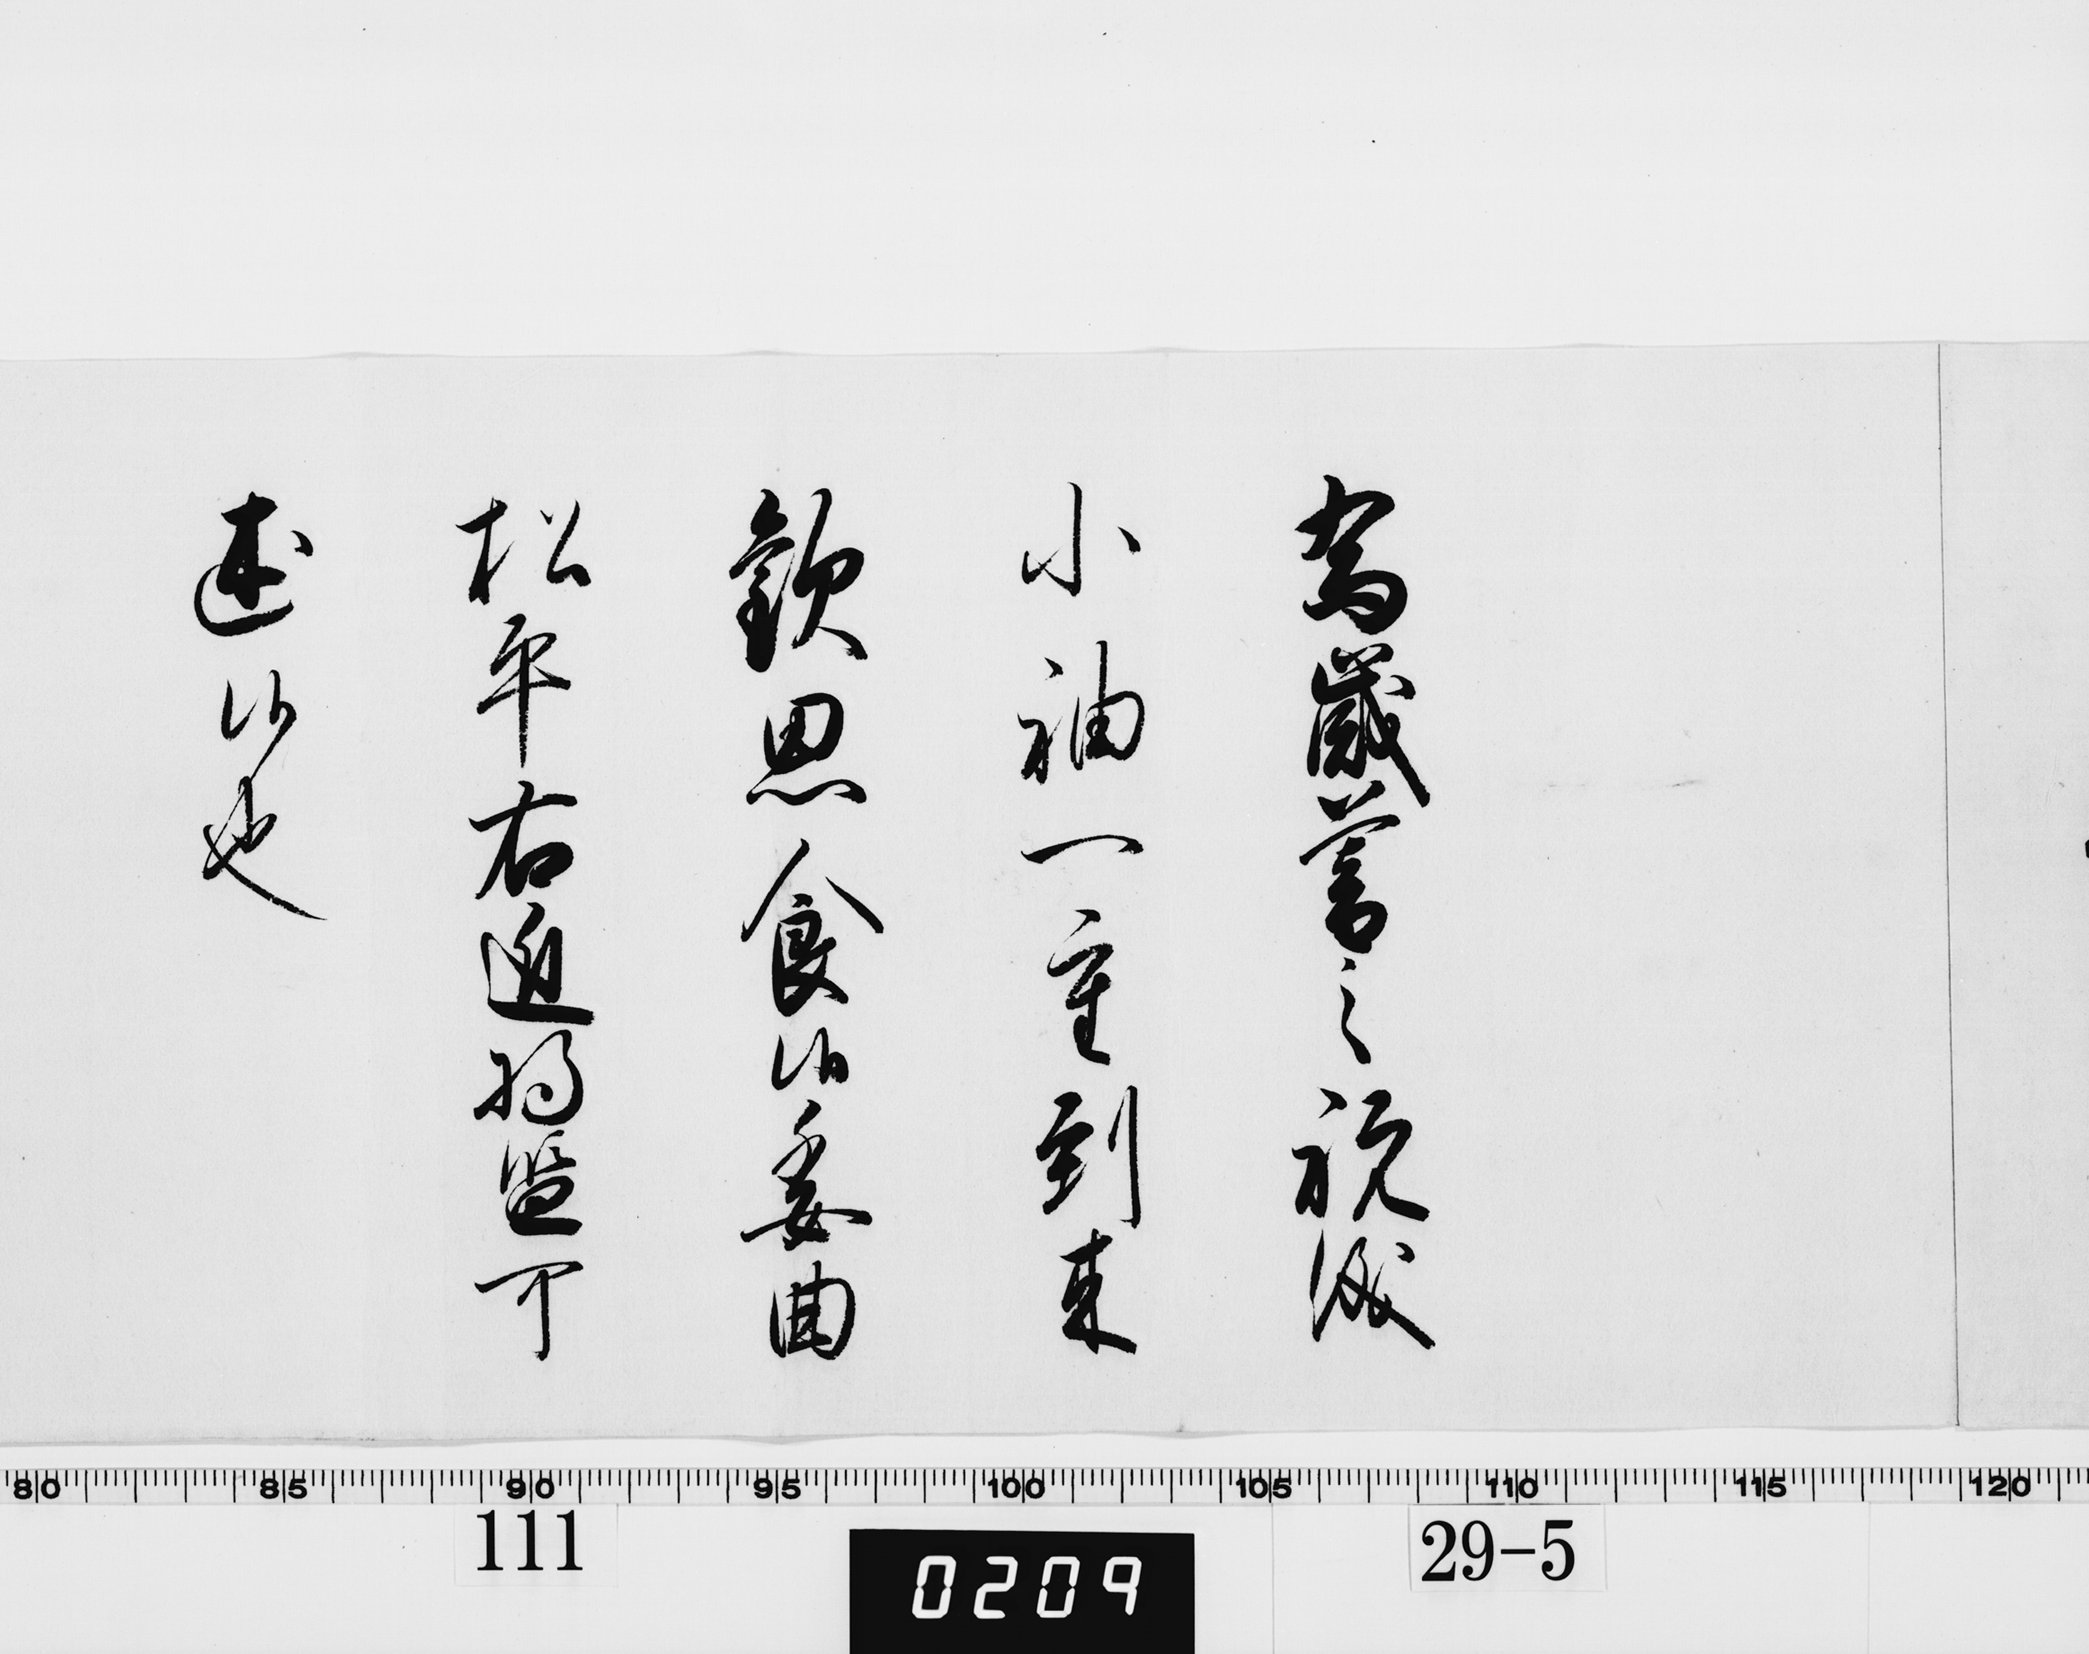 為歳暮之祝儀
小袖一重到来
歓思食候委曲
松平右近将監可
述候也
80 85 90 95 100 105 110 115 120
111
0209
29-5